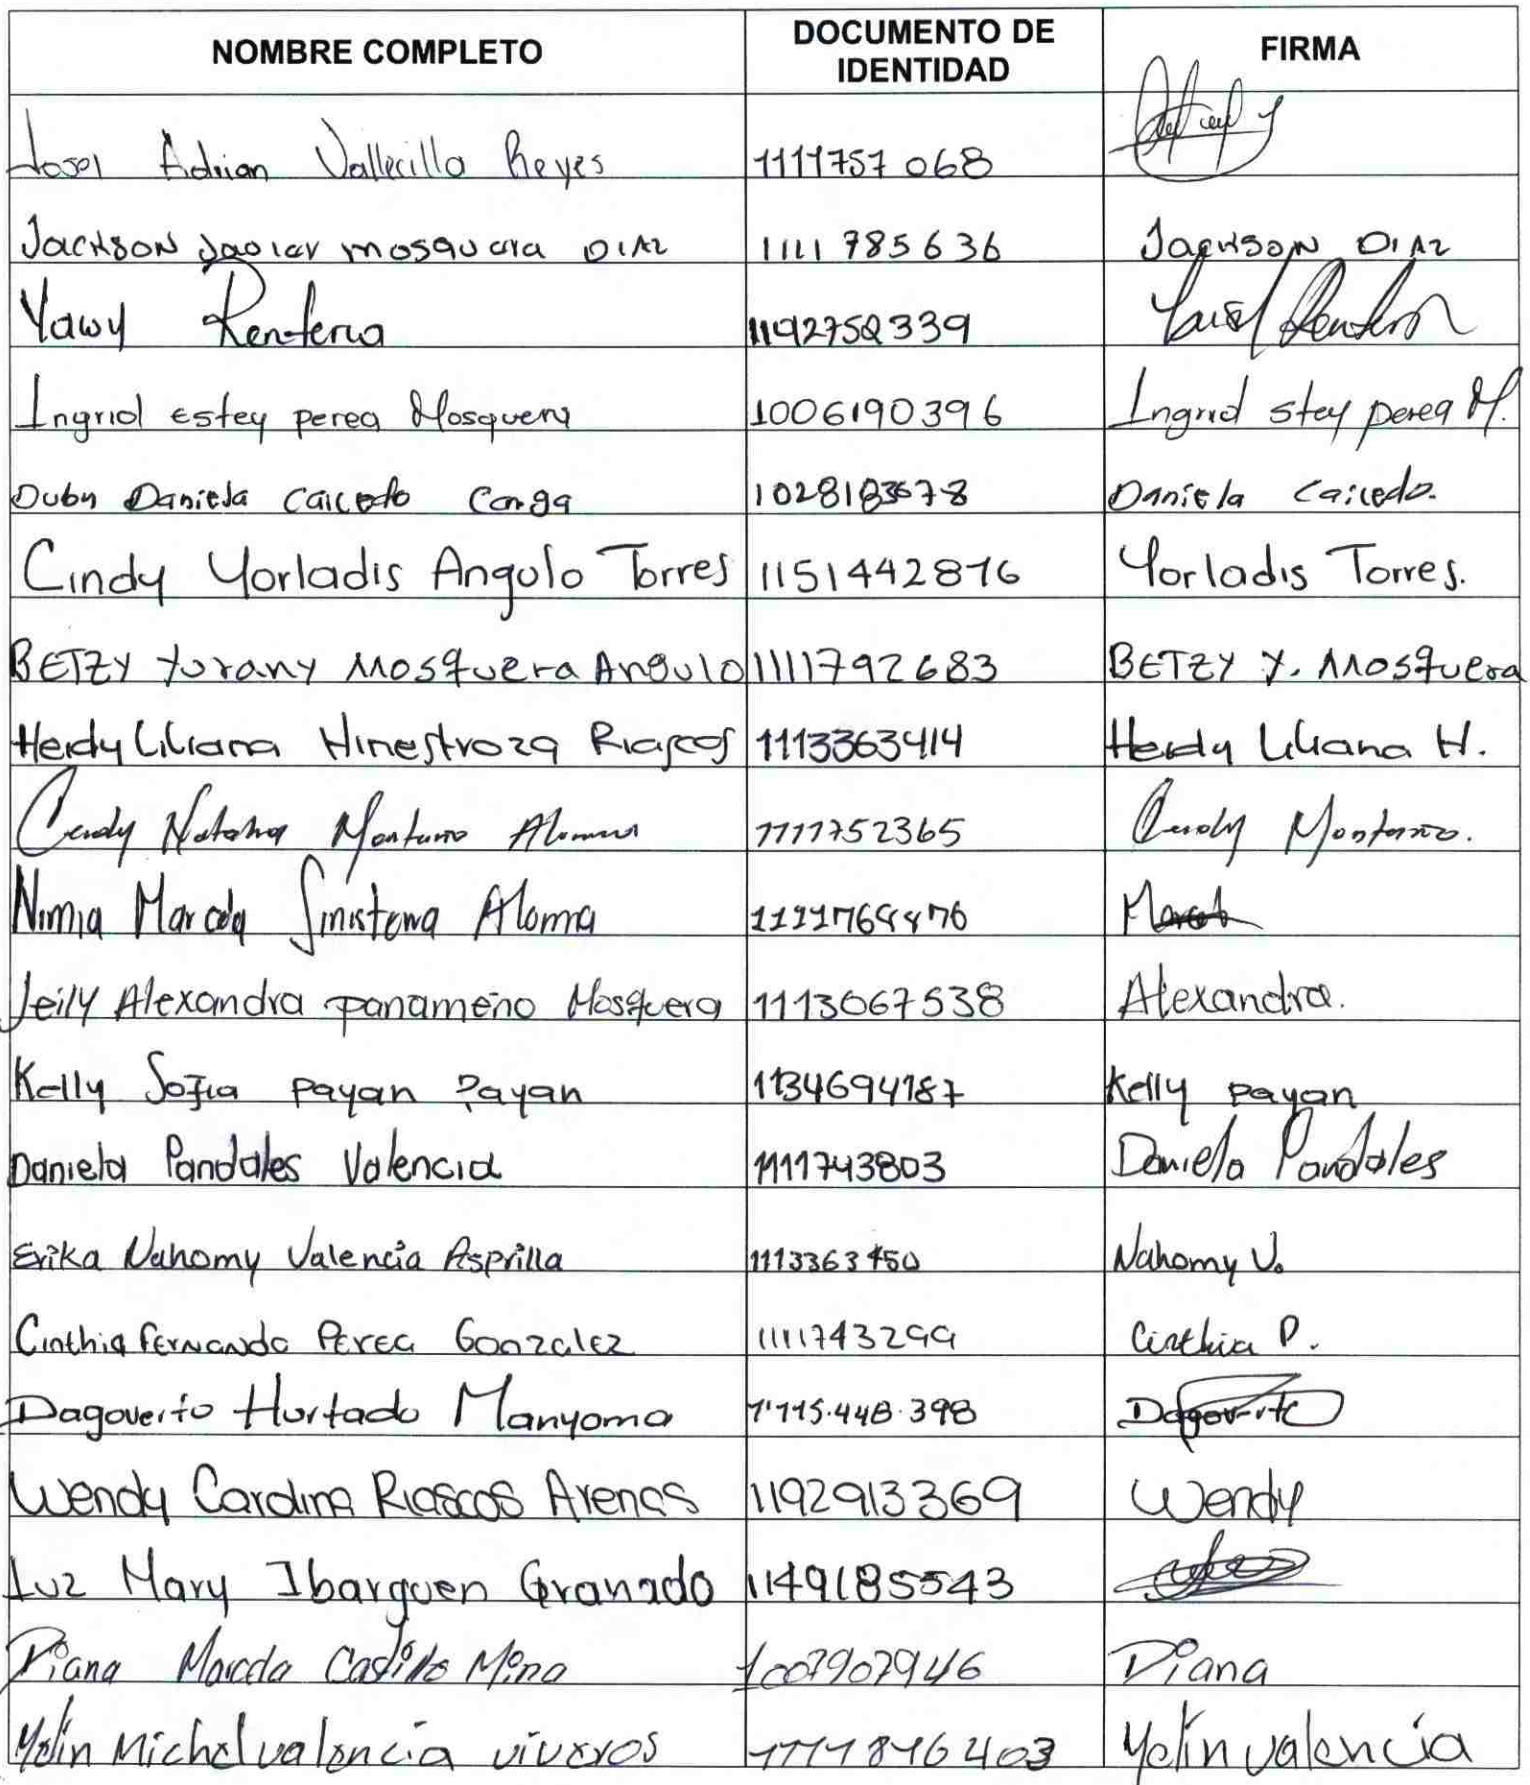 NOMBRE COMPLETO DOCUMENTO DE IDENTIDAD FIRMA
Adrian Vallecilla Reyes 1111757 068
Jackson Javier mosquera DIAZ 1111 785636 Jackson DIAZ
Yawy Renteria 1192752339
Ingrid Estey perea Mosquera 1006190396 Ingrid stey perea M.
Duby Daniela Caicedo Conga Daniela Caicedo.
Cindy Yorladis Angulo Torres 1151442876 Yorladis Torres.
BETZY Yurany Mosquera Angulo 1111792683 BETZY Y. Mosquera
Heidy Liliana Hinestroza Riascos 1113363414 Heidy Liliana H.
Natalia Montaño 1111752365 Montaño.
Nimia Marcela Sinisterra Aloma
Jeily Alexandra panameño Mosquera 1113067538 Alexandra.
Kelly Sofia payan Payan 1134694187 Kelly payan
Daniela Pandales Valencia 1111743803 Daniela Pandales
Erika Nahomy Valencia Asprilla 1113363450 Nahomy V.
Cinthia Fernanda Perea Gonzalez 1111743299 Cinthia P.
Dagoverto Hurtado Manyoma 1'115.448.398 Dagoverto
Wendy Carolina Riascos Arenas 1192913369 Wendy
Luz Mary Ibarguen Granado 1149185543
Diana Marcela Castillo Mina 1007907946 Diana
Yelin Michel valencia viveros 1111816403 Yelin valencia